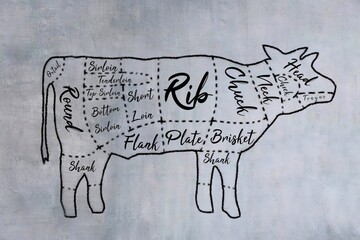 Oxtail
Sirloin
Tenderloin
Top Sirloin
Bottom
Sirloin
Round
Short
Loin
Rib
Chuck
Neck
Head
Cheek
Tongue
Flank
Plate
Brisket
Shank
Shank